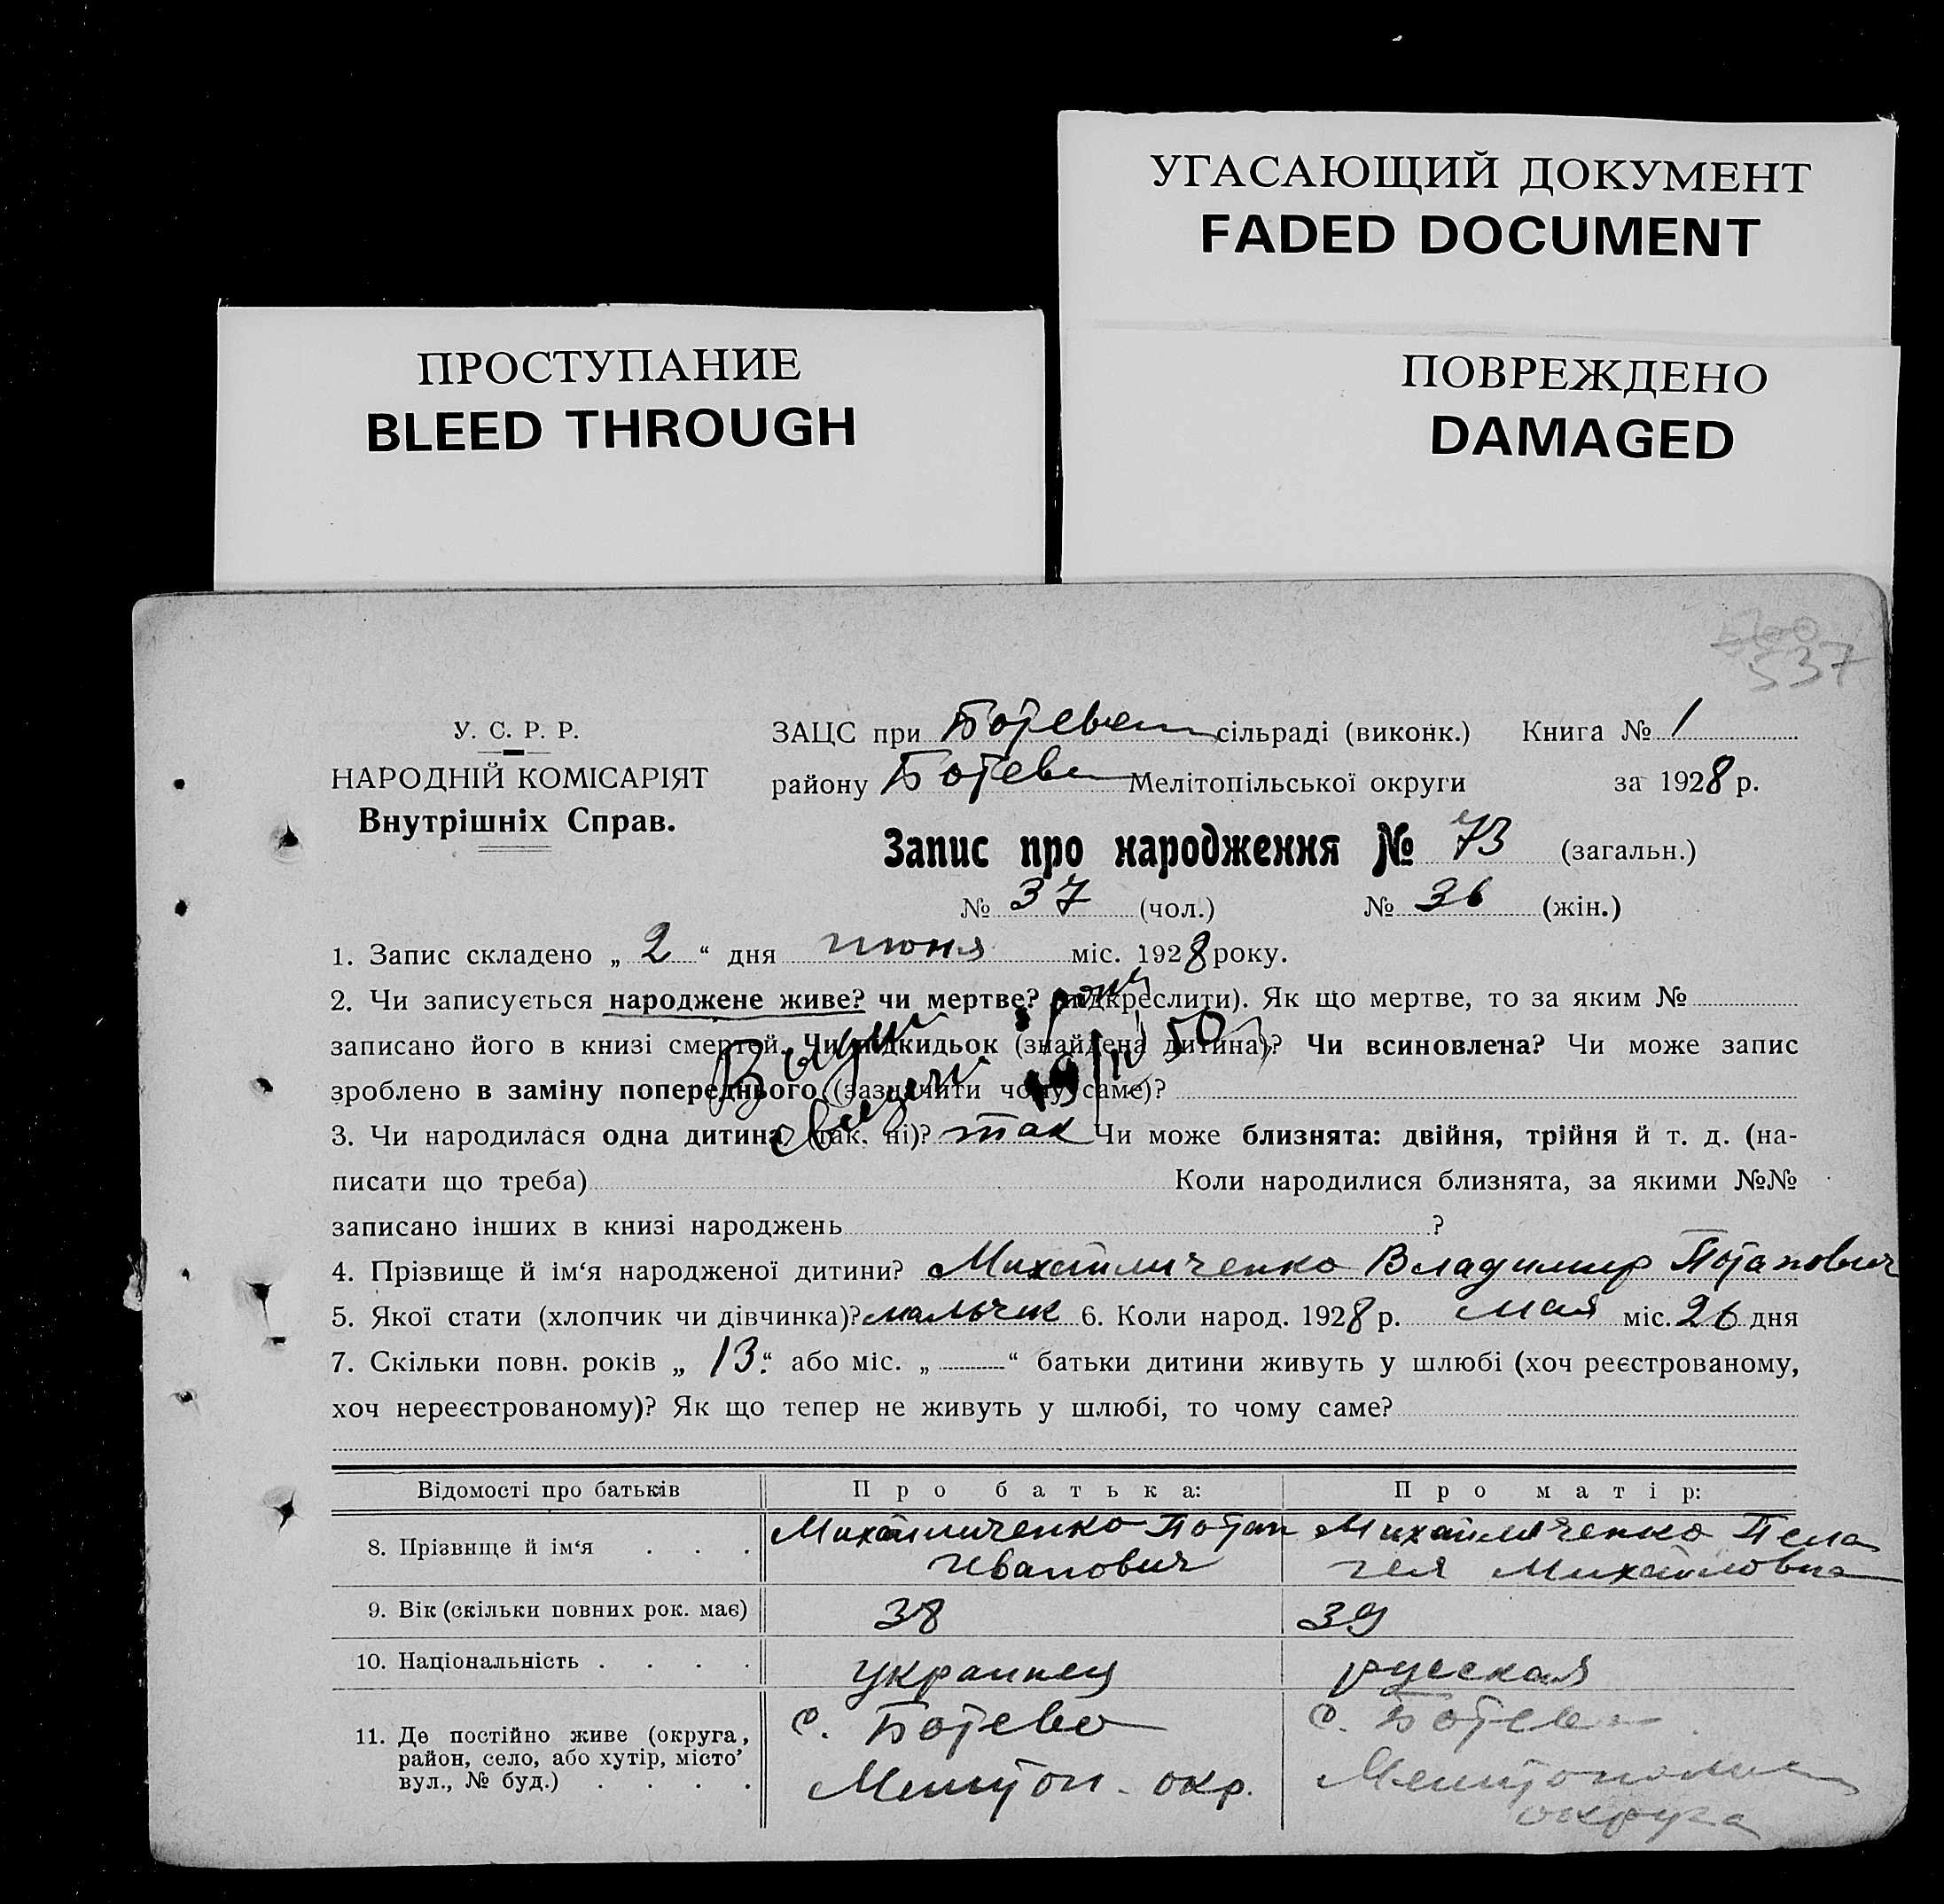 УГАСАЮЩИЙ ДОКУМЕНТ
FADED DOCUMENT
ПРОСТУПАНИЕ
BLEED THROUGH
ПОВРЕЖДЕНО
DAMAGED
537
У. С. Р. Р.
НАРОДНІЙ КОМІСАРІЯТ
Внутрішніх Справ.
ЗАЦС при Ботевен сільраді (виконк.) Книга № 1
району Ботеве Мелітопільської округи за 1928 р.
Запис про народження № 73 (загальн.)
№ 37 (чол.) № 36 (жін.)
1. Запис складено „ 2 “ дня июня міс. 1928 року.
2. Чи записується народжене живе? чи мертве? (підкреслити). Як що мертве, то за яким №
записано його в книзі смертей. Чи підкидьок (знайдена дитина)? Чи всиновлена? Чи може запис
зроблено в заміну попереднього (зазначити чому саме)?
3. Чи народилася одна дитина (так. ні)? так Чи може близнята: двійня, трійня й т. д. (на-
писати що треба) Коли народилися близнята, за якими №№
записано інших в книзі народжень ?
4. Прізвище й ім‘я народженої дитини? Михайличенко Владимир Потапович
5. Якої стати (хлопчик чи дівчинка)? мальчик 6. Коли народ. 1928 р. мая міс. 26 дня
7. Скільки повн. років „ 13 “ або міс. „ “ батьки дитини живуть у шлюбі (хоч реєстрованому,
хоч нереєстрованому)? Як що тепер не живуть у шлюбі, то чому саме?
Відомості про батьків Про батька: Про матір:
8. Прізвище й ім‘я . . . Михайличенко Потап Иванович Михайличенко Пелагея Михайловна
9. Вік (скільки повних рок. має) 38 39
10. Національність . . . . украинец русская
11. Де постійно живе (округа, район, село, або хутір, місто’ вул., № буд.) . . . . с. Ботево Мелитоп. окр. с. Ботево Мелитополь округа